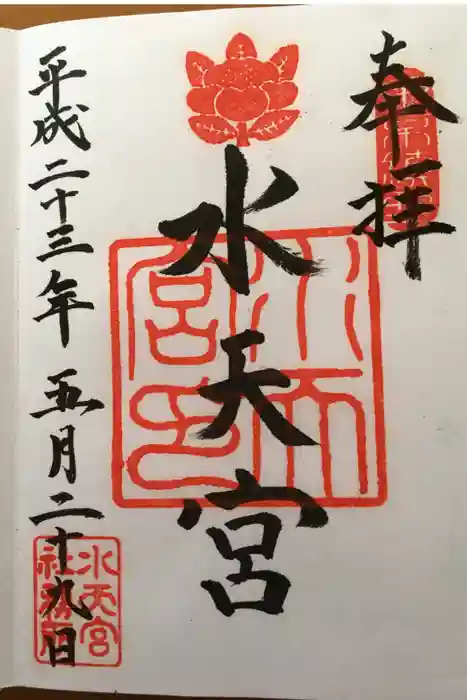 奉拝
水天宮
平成二十三年五月二十九日
水天宮印
水天宮
社務所